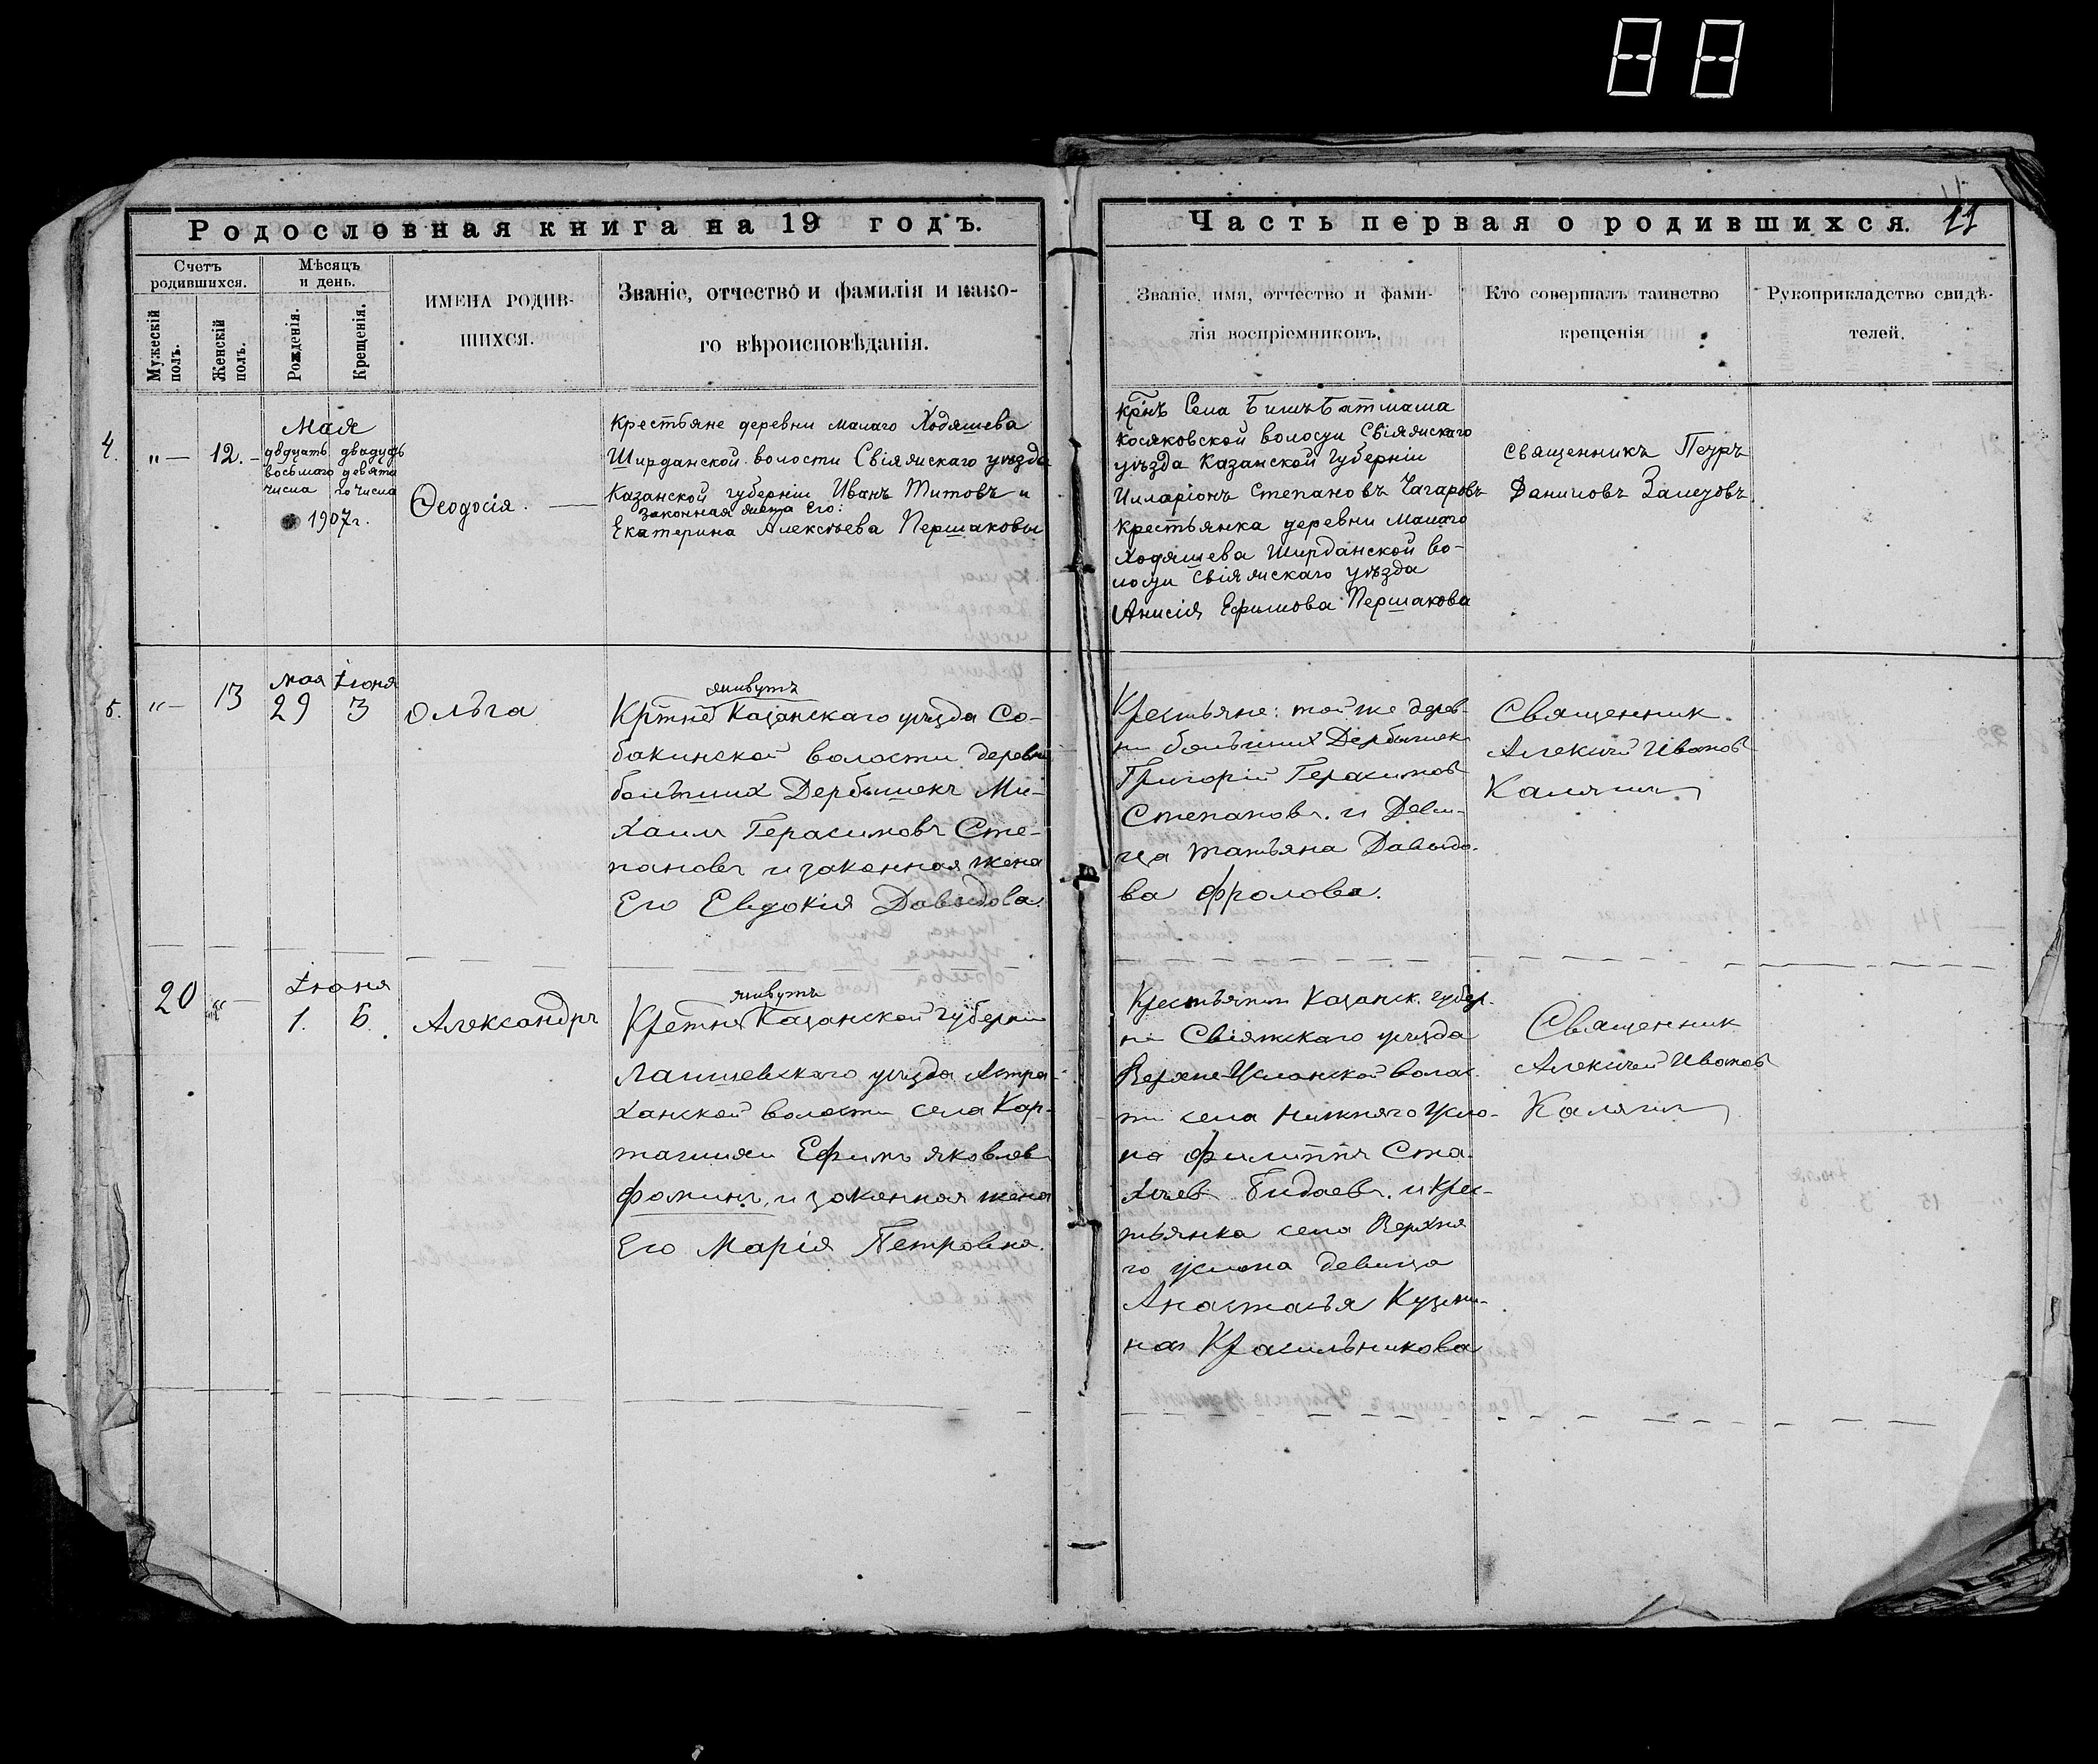 Родословная книга на 19 годъ.
Счетъ
родившихся.
Мѣсяцъ
и день.
Мужескій
полъ.
Женскій
полъ.
Рожденія.
Крещенія.
ИМЕНА РОДИВ-
ШИХСЯ.
Званіе, отчество и фамилія и како-
го вѣроисповѣданія.
Часть первая о родившихся.
11
Званіе, имя, отчество и фами-
лія воспріемниковъ.
Кто совершалъ таинство
крещенія
Рукоприкладство свидѣ-
телей.
4.
"—
12.
Мая
двдцать двадцать
восьмаго девята
числа го числа
1907г.
Ѳеодосія.
Крестьяне деревни малаго Ходяшева
Ширданской волости Свіяжскаго уѣзда
Казанской губерніи Иванъ Титовъ и
законная жена Его:
Екатерина Алексѣева Першаковы
Крнъ Села БишъБатмаша
Косяковской волости Свіяжскаго
уѣзда Казанской Губерніи
Илларіонъ Степановъ Чагаровъ
Крестьянка деревни Малаго
Ходяшева Ширданской во-
лости Свіяжскаго уѣзда
Анисія Ефимова Першакова
Священникъ Петръ
Даниловъ Залетовъ
5.
"—
13
мая Іюня
29 3
Ольга
живутъ
Кртне Казанскаго уѣзда Со-
бакинской волости деревни
большихъ Дербышекъ Ми-
хаилъ Герасимовъ Сте-
пановъ и законная жена
Его Евдокія Давыдова.
Крестьяне: той же дерев-
ни большихъ Дербышек
Григорій Герасимовъ
Степановъ. и Деви-
ца татьяна Давыдо-
ва фролова.
Священник.
Алексѣй Ивановъ
Калягин
20
"—
Іюня
1. 6.
Александръ
живутъ
Кретне Казанской губерни
Лаишевскаго уѣзда Астра-
ханской волости села Кар-
ташихи Ефимъ яковлев
фоминъ, и законная жена
Его Марія Петровна.
Крестьянин Казанск. губер.
ни Свіяжскаго уѣзда
Верхне-Услонской волос
ти села нижняго Усло-
на филиппъ Ста
хѣев Бидаевъ. и Крес-
тьянка села Верхня
го услона девица
Анастасья Кузми-
на Красильникова
Священник
Алексѣй Ивановъ
Калягин